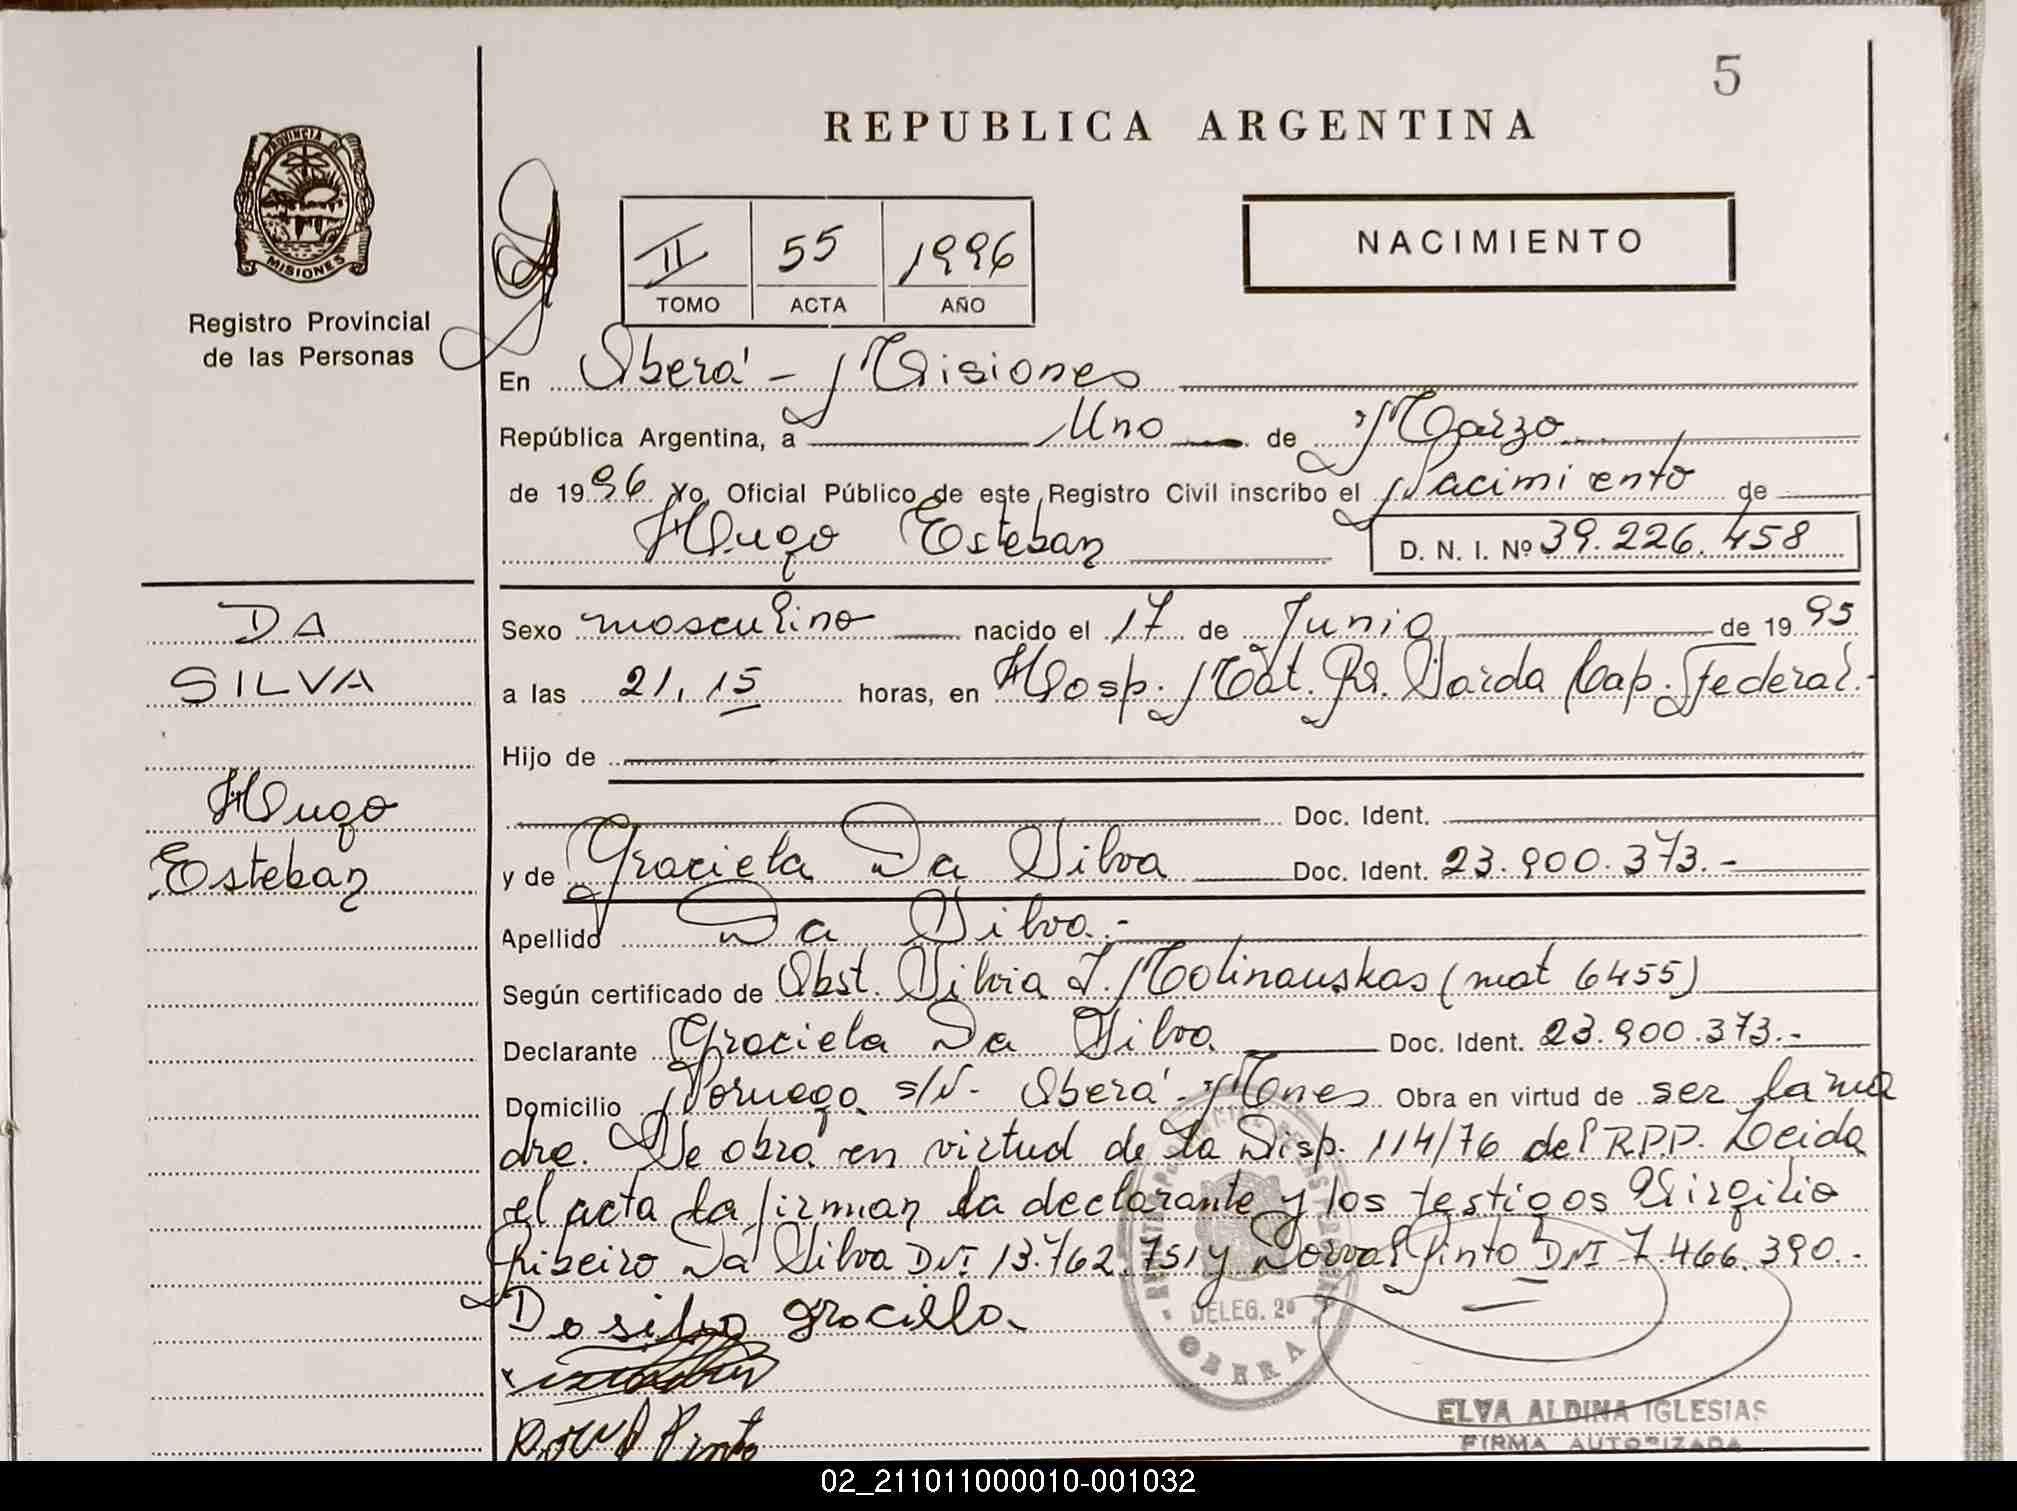 5
REPUBLICA ARGENTINA
PROVINCIA DE
MISIONES
Registro Provincial
de las Personas
II 55 1996
TOMO ACTA AÑO
NACIMIENTO
En Oberá - Misiones
República Argentina, a Uno de Marzo
de 1996 Yo, Oficial Público de este Registro Civil inscribo el Nacimiento de
Hugo Esteban D. N. I. Nº 39.226.458
DA
SILVA
Hugo
Esteban
Sexo masculino nacido el 17 de Junio de 1995
a las 21,15 horas, en Hosp. Mat. Sarda Cap. Federal.-
Hijo de
Doc. Ident.
y de Graciela Da Silva Doc. Ident. 23.900.373.-
Apellido Da Silva.-
Según certificado de Obst. Silvia J. Molinauskas (mat 6455)
Declarante Graciela Da Silva Doc. Ident. 23.900.373.-
Domicilio Noruega s/N- Oberá - Mnes Obra en virtud de ser la ma
dre. Se obra en virtud de la Disp. 114/76 del R.P.P. Leida
el acta la firman la declarante y los testigos Virgilio
Ribeiro Da Silva DNI 13.762.751 y Dorval Pinto DNI 7.466.390.-
Da silva graciella
DELEG. 2ª
OBERA
Pinto
ELVA ALDINA IGLESIAS
FIRMA AUTORIZADA
02_211011000010-001032